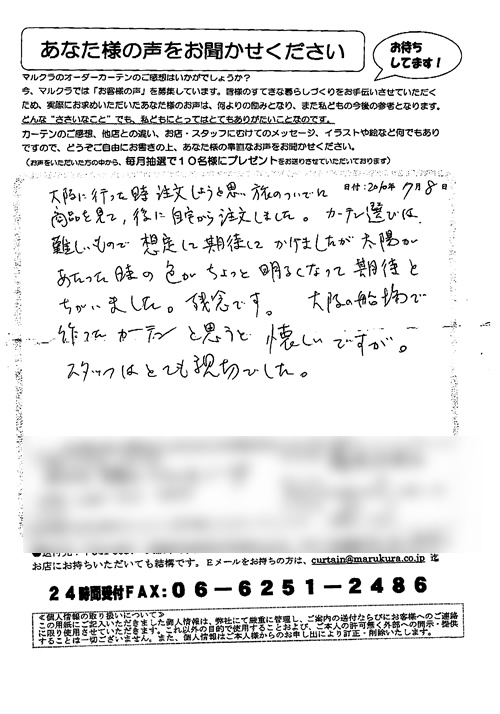 あなた様の声をお聞かせください
お待ち
してます!
マルクラのオーダーカーテンのご感想はいかがでしょうか?
今、マルクラでは「お客様の声」を募集しています。皆様のすてきな暮らしづくりをお手伝いさせていただく
ため、実際にお求めいただいたあなた様のお声は、何よりの励みとなり、また私どもの今後の参考となります。
どんな"ささいなこと"でも、私どもにとってはとてもありがたいことなのです。
カーテンのご感想、他店との違い、お店・スタッフにむけてのメッセージ、イラストや絵など何でもあり
ですので、どうぞご自由にお書きの上、あなた様の率直なお声をお聞かせください。
(お声をいただいた方の中から、毎月抽選で10名様にプレゼントをお送りさせていただいております)
日付:2010年 7月 8日
大阪に行った時 注文しようと思い 旅のついでに
商品を見て、後に自宅から注文しました。 カーテン選びは、
難しいもので 想定して期待して かけましたが 太陽が
あたった時の色がちょっと明るくなって期待と
ちがいました。残念です。 大阪の船場で
作ったカーテンと思うと 懐しいですが。
スタッフはとても親切でした。
お店にお持ちいただいても結構です。Eメールをお持ちの方は、curtain@marukura.co.jp 迄
24時間受付FAX:06-6251-2486
≪個人情報の取り扱いについて≫
この用紙にご記入いただきました個人情報は、弊社にて厳重に管理し、ご案内の送付ならびにお客様へのご連絡
に限り使用させていただきます。これ以外の目的で使用することおよび、ご本人の許可無く外部への開示・提供
することは一切ございません。また、個人情報はご本人様からのお申し出により訂正・削除いたします。